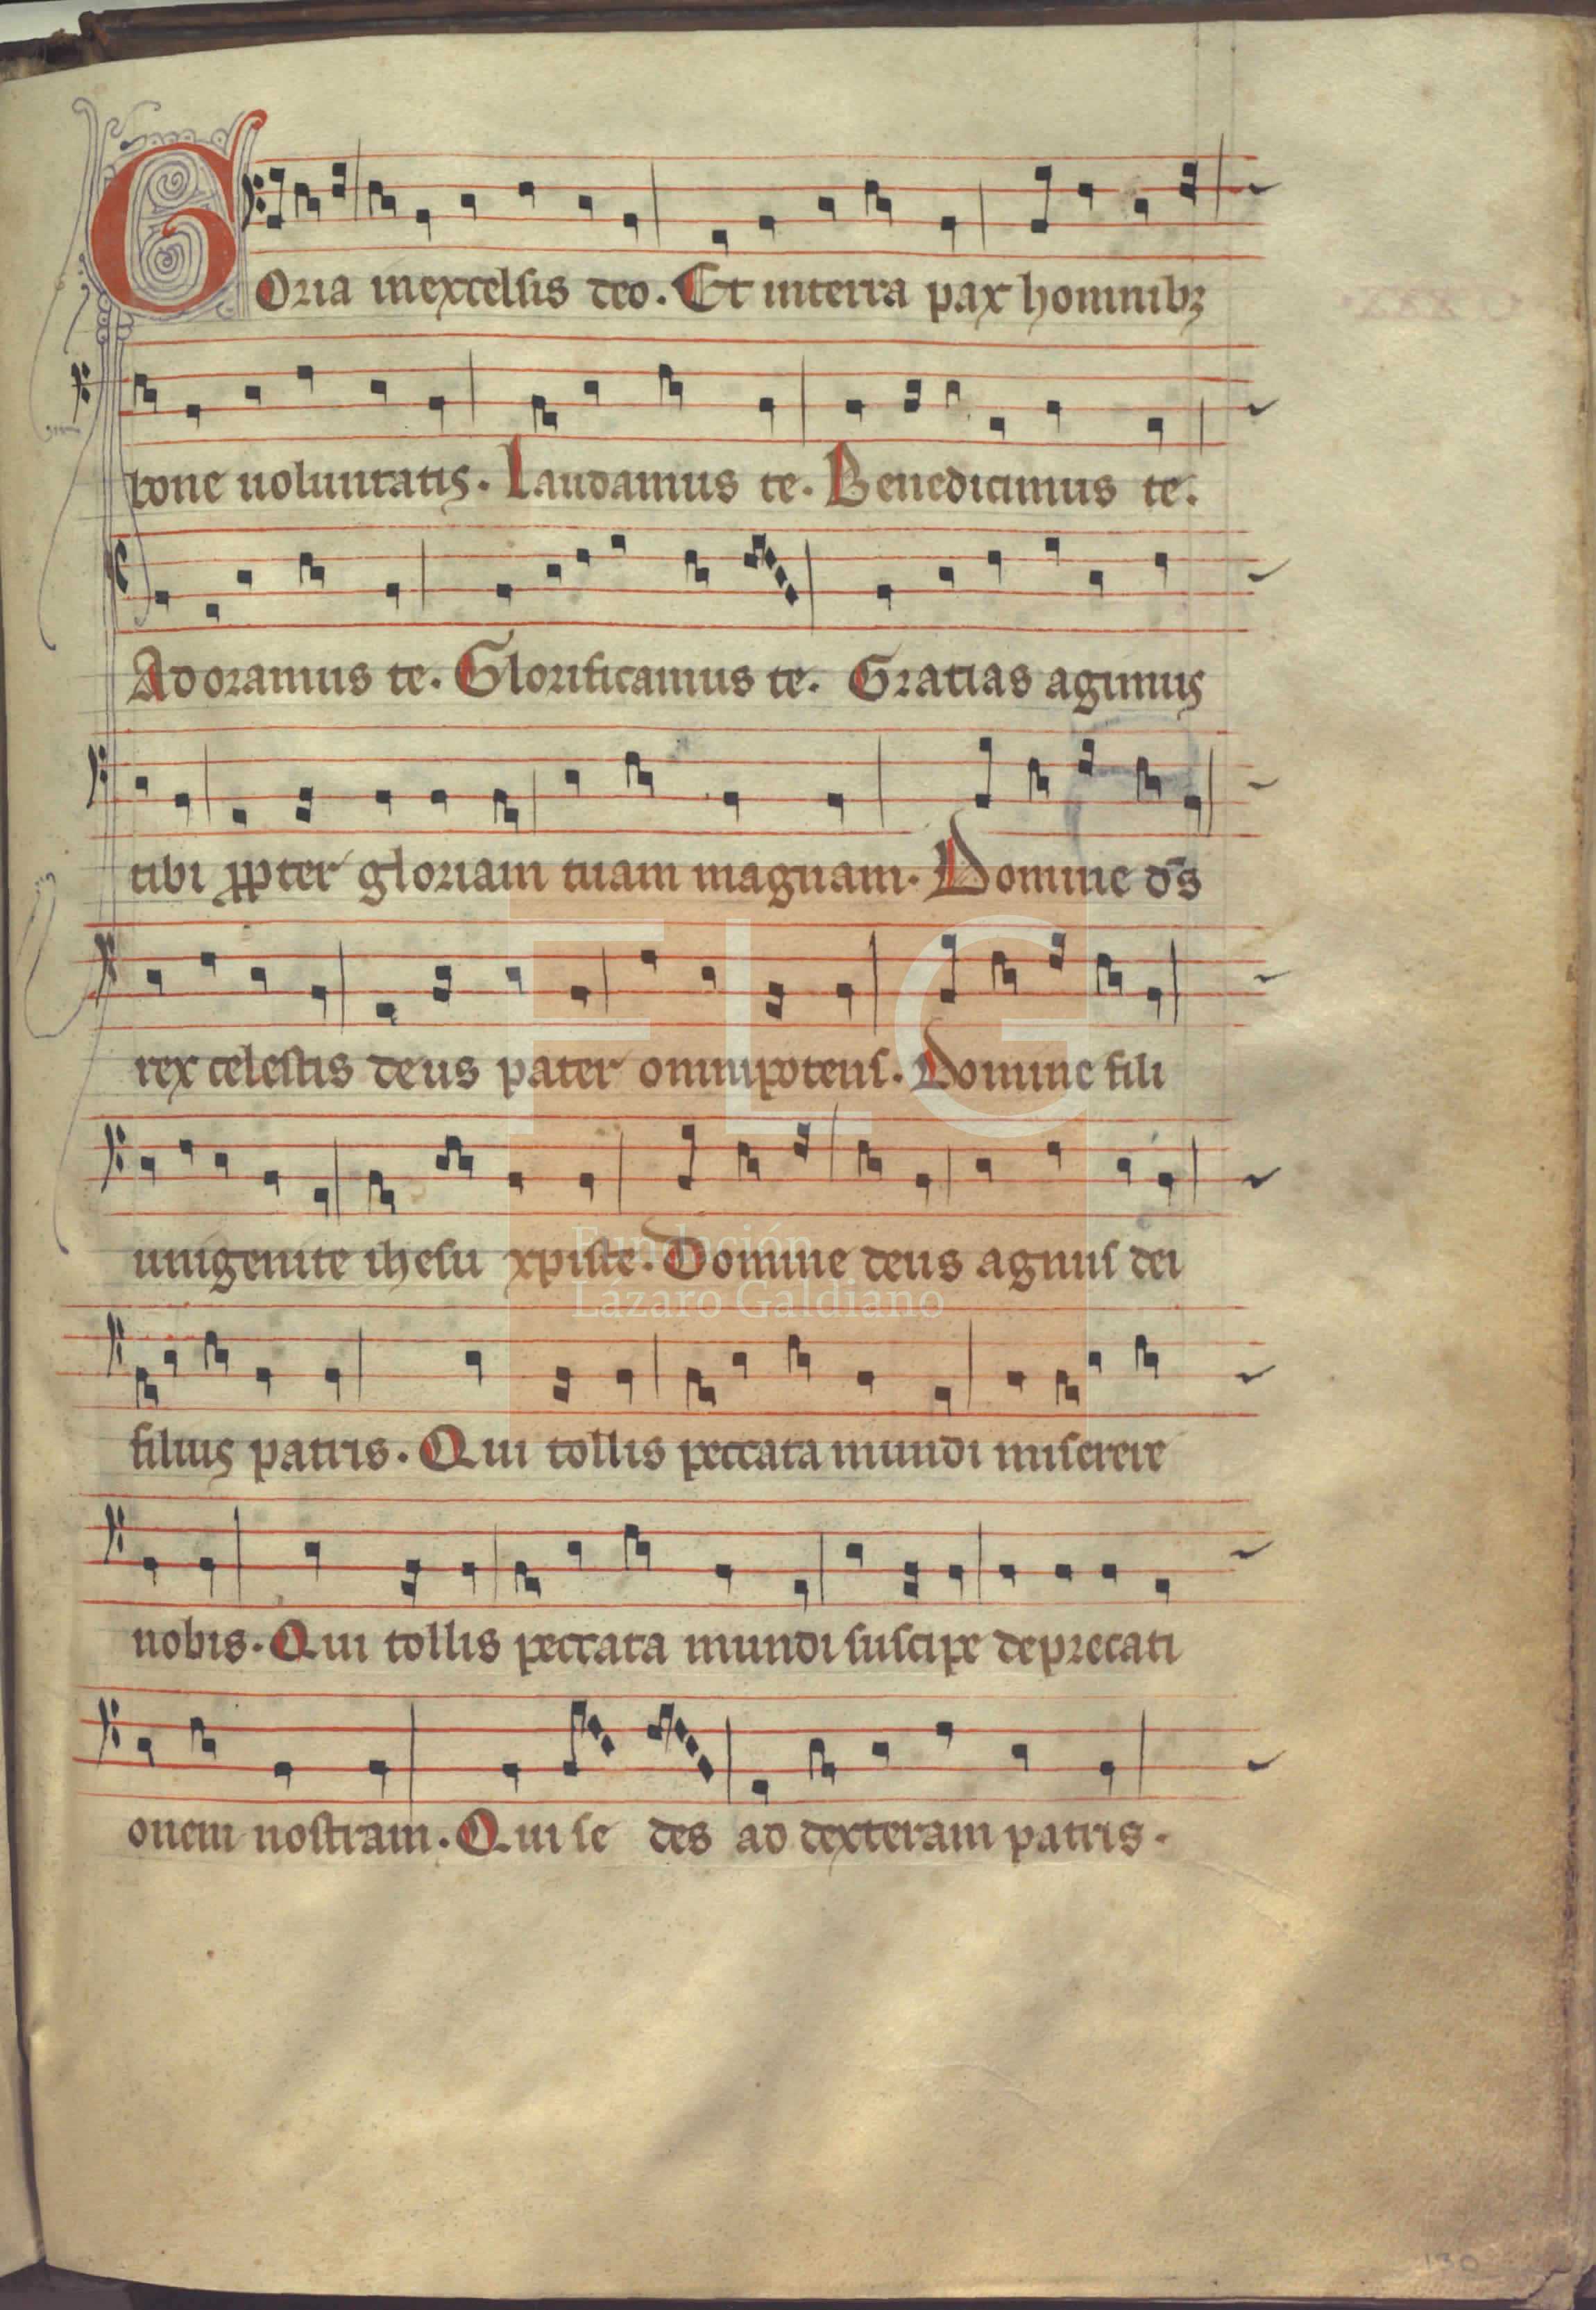 Goria in excelsis deo. Et in terra pax hominibꝫ
bone uoluntatis. Laudamus te. Benedicimus te.
Adoramus te. Glorificamus te. Gratias agimus
tibi ꝓpter gloriam tuam magnam. Domine d̄s
rex celestis deus pater omnipotens. Domine fili
unigenite ihesu xpiste. Domine deus agnus dei
filius patris. Qui tollis peccata mundi miserere
nobis. Qui tollis peccata mundi suscipe deprecati
onem nostram. Qui se des ad dexteram patris.
FLG
Fundación
Lázaro Galdiano
130